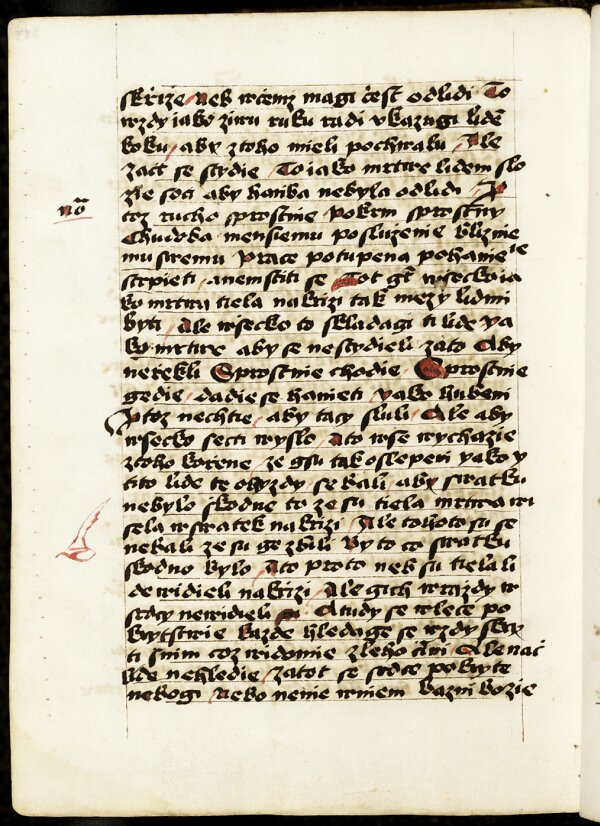 skrize nek wcemz magi cest odlidi To
wzdy iako zivu ruku radi vkazugi lide
koku aby ztoho mieli pochwalu Ale
zacz se stydie To iako mrtwe lidem slo
zie soci aby hanba nebyla odlidi A
no
toz rucho sprostnie pokrm sprostny
Chudoba mensiemu posluzenie bliznie
mu swemu prace potupena pohanienie
strpieti anemstiti se Tot gt wsecko ia
ko mrtwa tiela nakrizi tak mezy lidmi
byti Ale wsecko to skladagi ti lide ya
ko mrtwe aby se nestydieli zato Aby
nerekli Sprostnie chodie Sprostnie
gedie dadie se hanieti yako hubeni
A toz nechtie aby tacy sluli Ale aby
wsecko secti wyslo Ato wse wychazie
ztoho korene ze gsu tak oslepeni yako y
tito lide te ohyzdy se bali aby swatku
nebylo skodne to ze su tiela mrtwa wi
sela wswatek nakrizi Ale tohoto su se
nebali ze su ge zbili By to co swatku
skodno bylo Ato proto nek su tiela li
de widieli nakrizi Ale gich wrazdy w
srdcy newidieli Atudy se wlece po
krytstwie kazde hledage se wzdy skry
ti snim coz widomie zleho cini Ale nac
lide nehledie zatot se srdce pokryte
nebogi Nebo nenie wniem bazni bozie